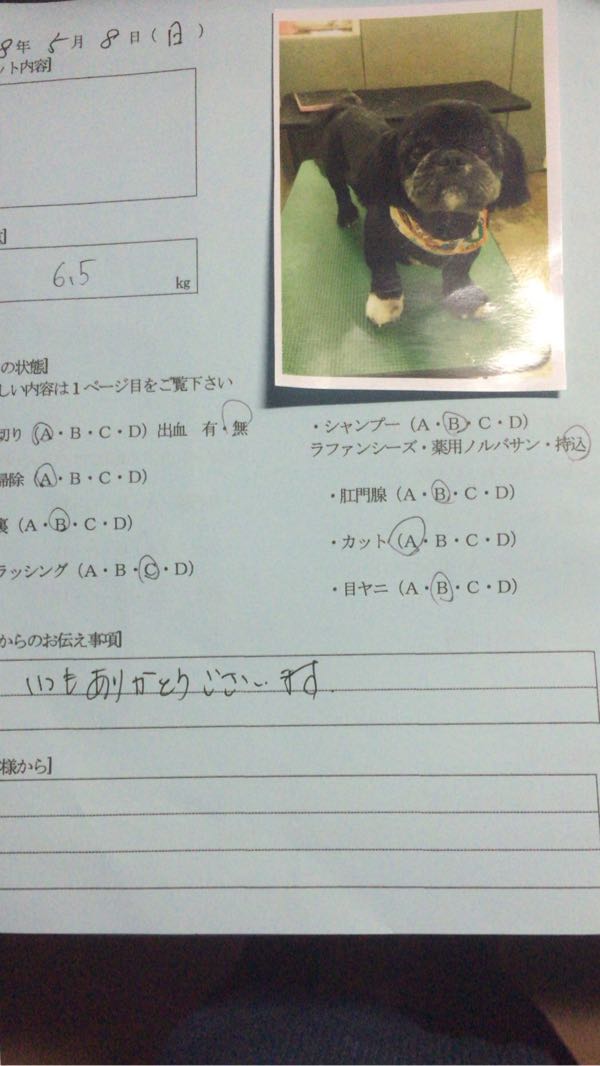 8年 5月 8日(日)
ット内容]
]
6.5 kg
の状態]
しい内容は1ページ目をご覧下さい
切り (A・B・C・D) 出血 有・無
掃除 (A・B・C・D)
裏 (A・B・C・D)
ラッシング (A・B・C・D)
・シャンプー (A・B・C・D)
ラファンシーズ・薬用ノルバサン・持込
・肛門腺 (A・B・C・D)
・カット (A・B・C・D)
・目ヤニ (A・B・C・D)
からのお伝え事項]
いつもありがとうございます.
様から]